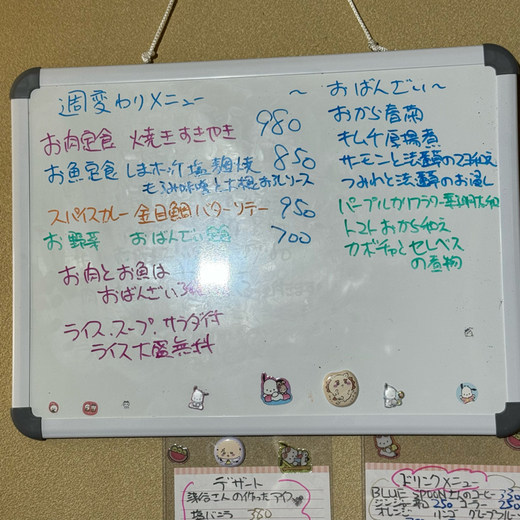 週変わりメニュー
お肉定食 焼き すきやき 980
お魚定食 しまホッケ塩麹焼 850
スパイスカレー 金目鯛バターソテー 950
お野菜 おばんざい 700
お肉とお魚は
おばんざい
ライス、スープ、サラダ付
ライス大盛無料
～おばんざい～
おから春菊
キムチ厚揚煮
サーモンと法蓮草の
つみれと法蓮草のお浸し
パープルカリフラワー
トマトおから和え
カボチャとセレベス
の煮物
デザート
さんの作ったアイス
塩バニラ 380
ドリンクメニュー
BLUE SPOONさんのコーヒー 350
ジンジャー 250 コーラー 250
オレンジ リンゴ グレープフルーツ